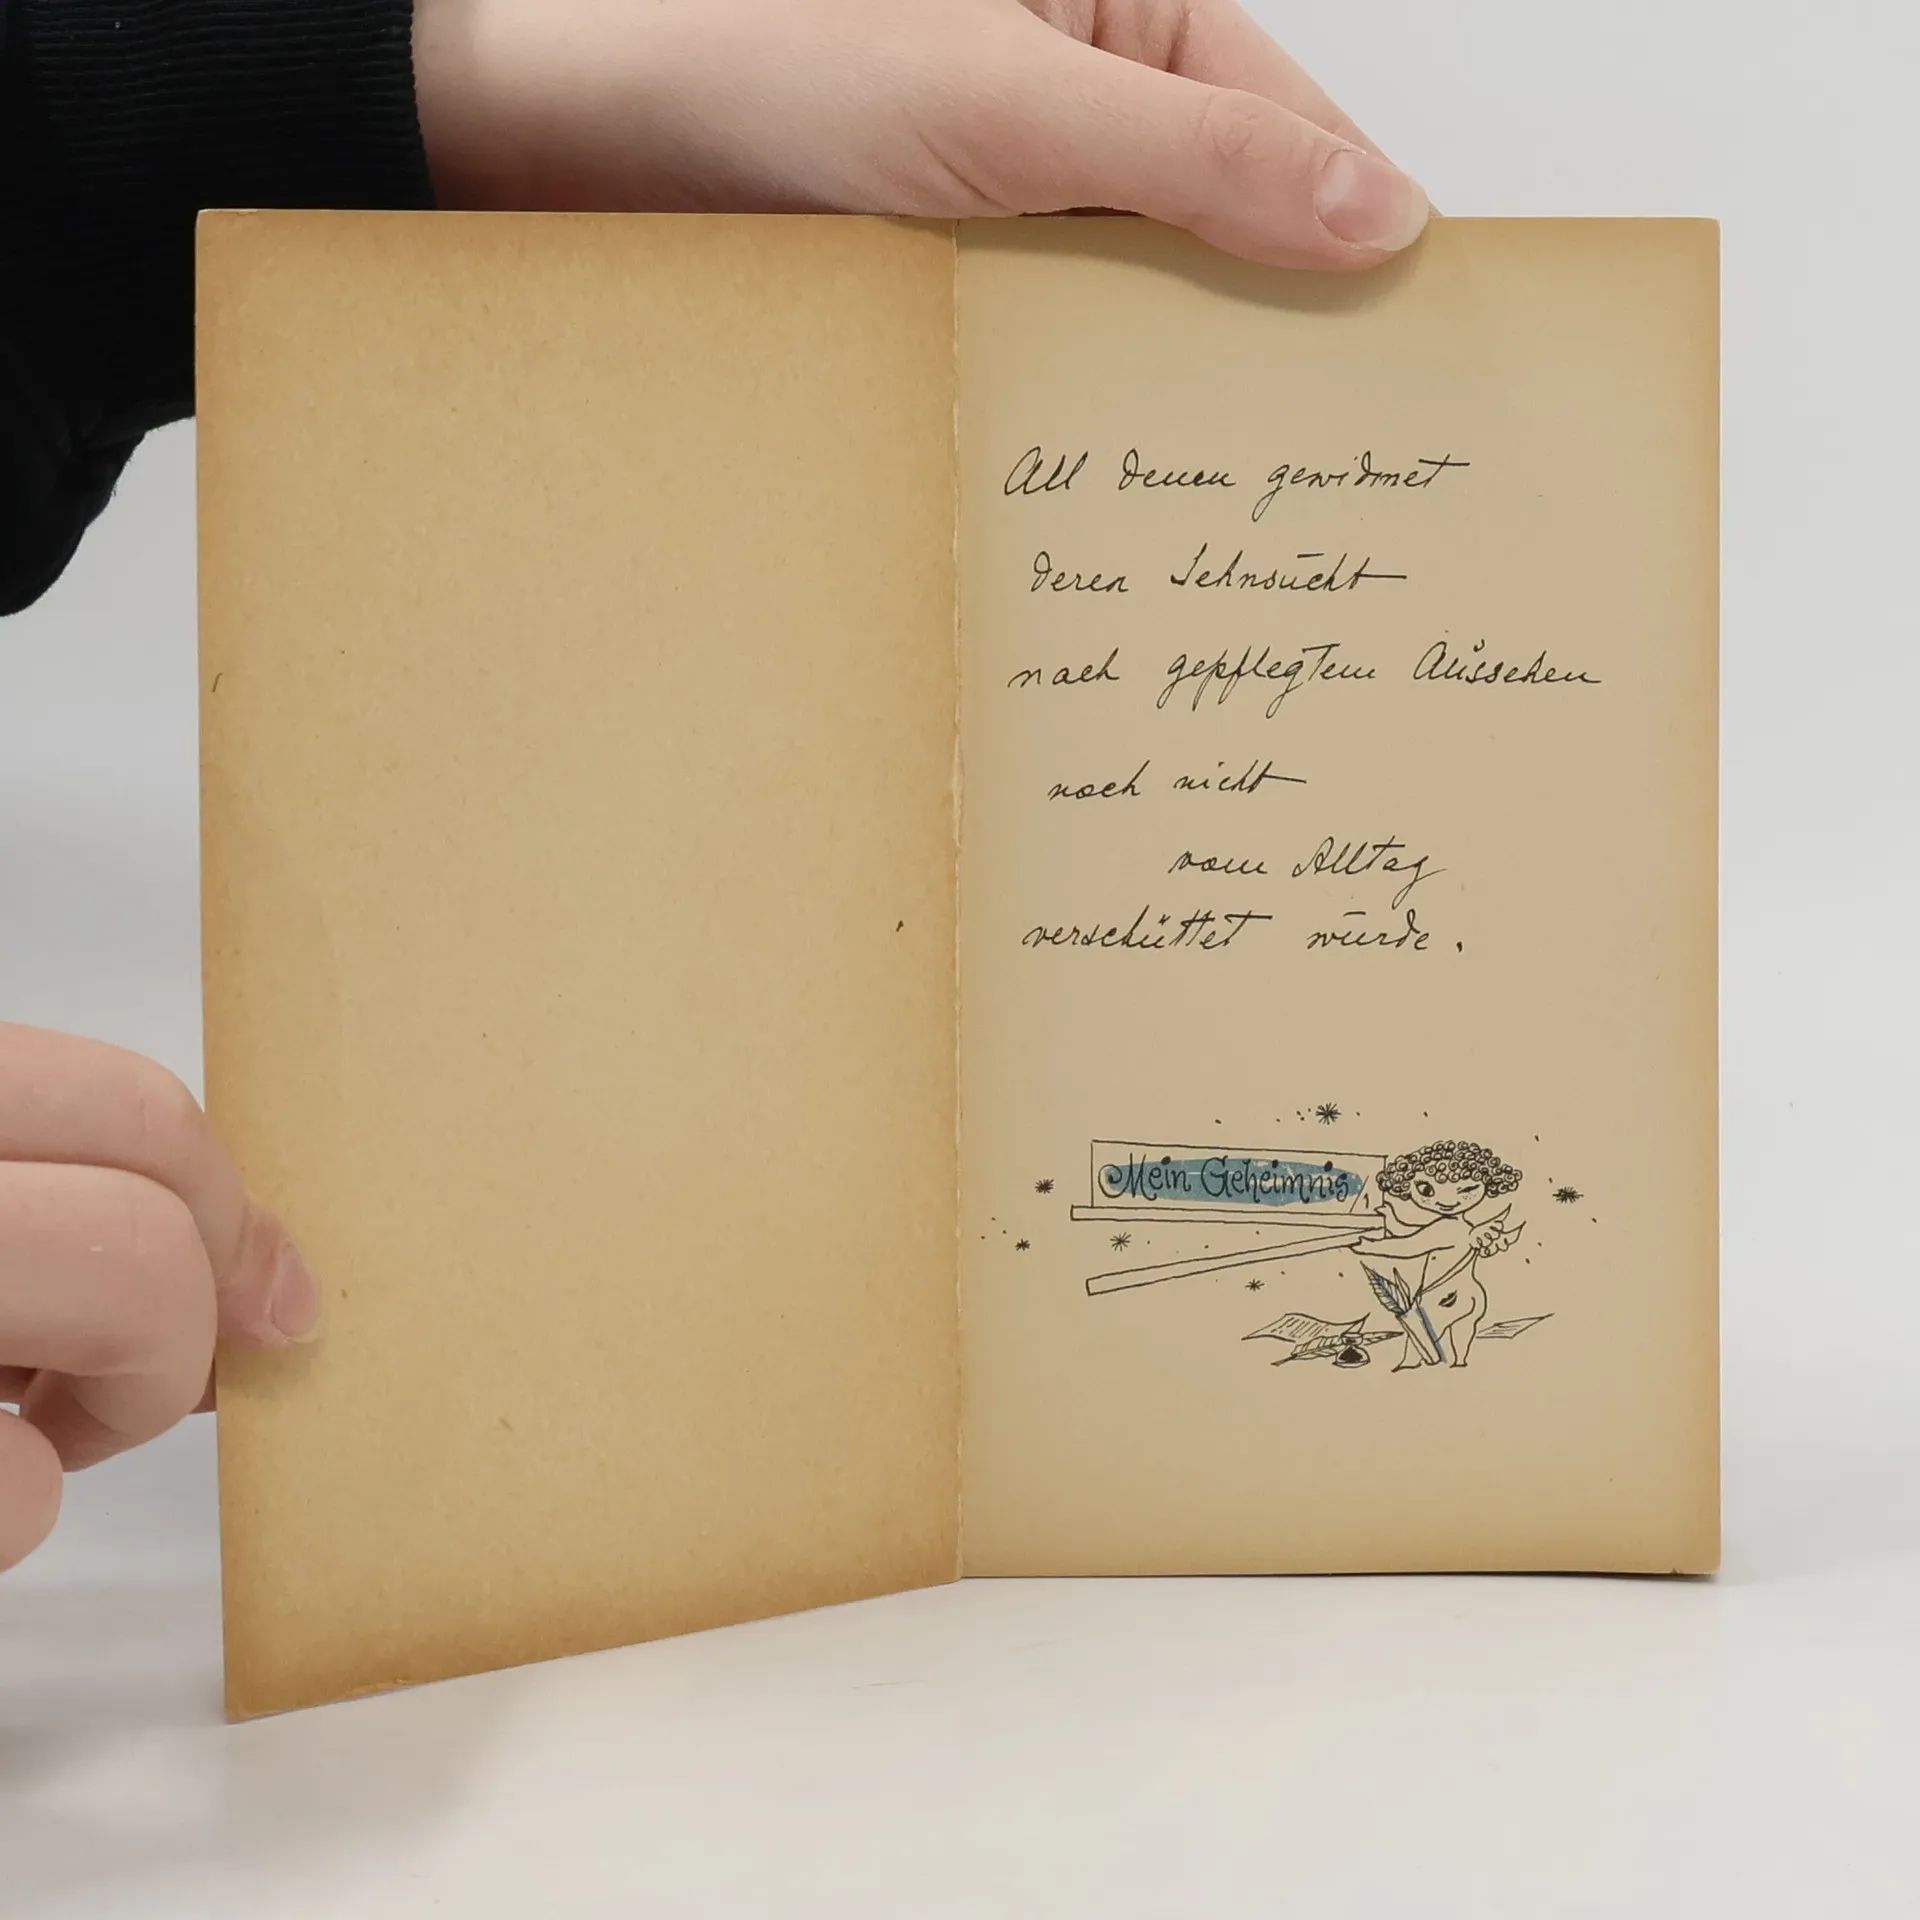 All denen gewidmet
deren Sehnsucht
nach gepflegtem Aussehen
noch nicht
vom Alltag
verschüttet wurde.
Mein Geheimnis